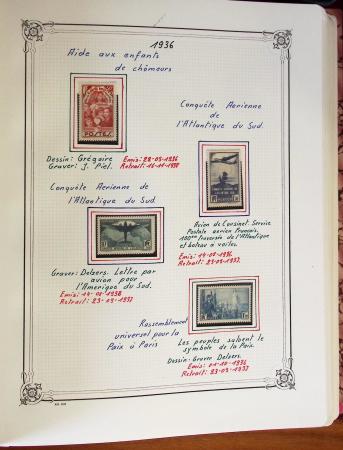 1936
Aide aux enfants
de chômeurs
POSTES
Dessin: Grégaire Emis: 28-05-1936
Graver: J. Piel. Retrait: 16-11-1936
Conquête Aerienne
de
l'Atlantique du Sud.
Avion de Corsinet Service
Postale aerien français.
100ème traversée de l'Atlantique
et bateau a voiles.
Emis: 14-08-1936
Retrait: 23-09-1937.
Conquête Aerienne de
l'Atlantique du Sud.
10F
Graver: Delzers. Lettre par
avion pour
l'Amerique du Sud.
Emis: 14-08-1936
Retrait: 23-09-1937
Rassemblement
universel pour la
Paix à Paris
Les peuples saluent le
symbole de la Paix.
Dessin: Graver Delzers.
Emis: 01-10-1936
Retrait: 23-09-1937